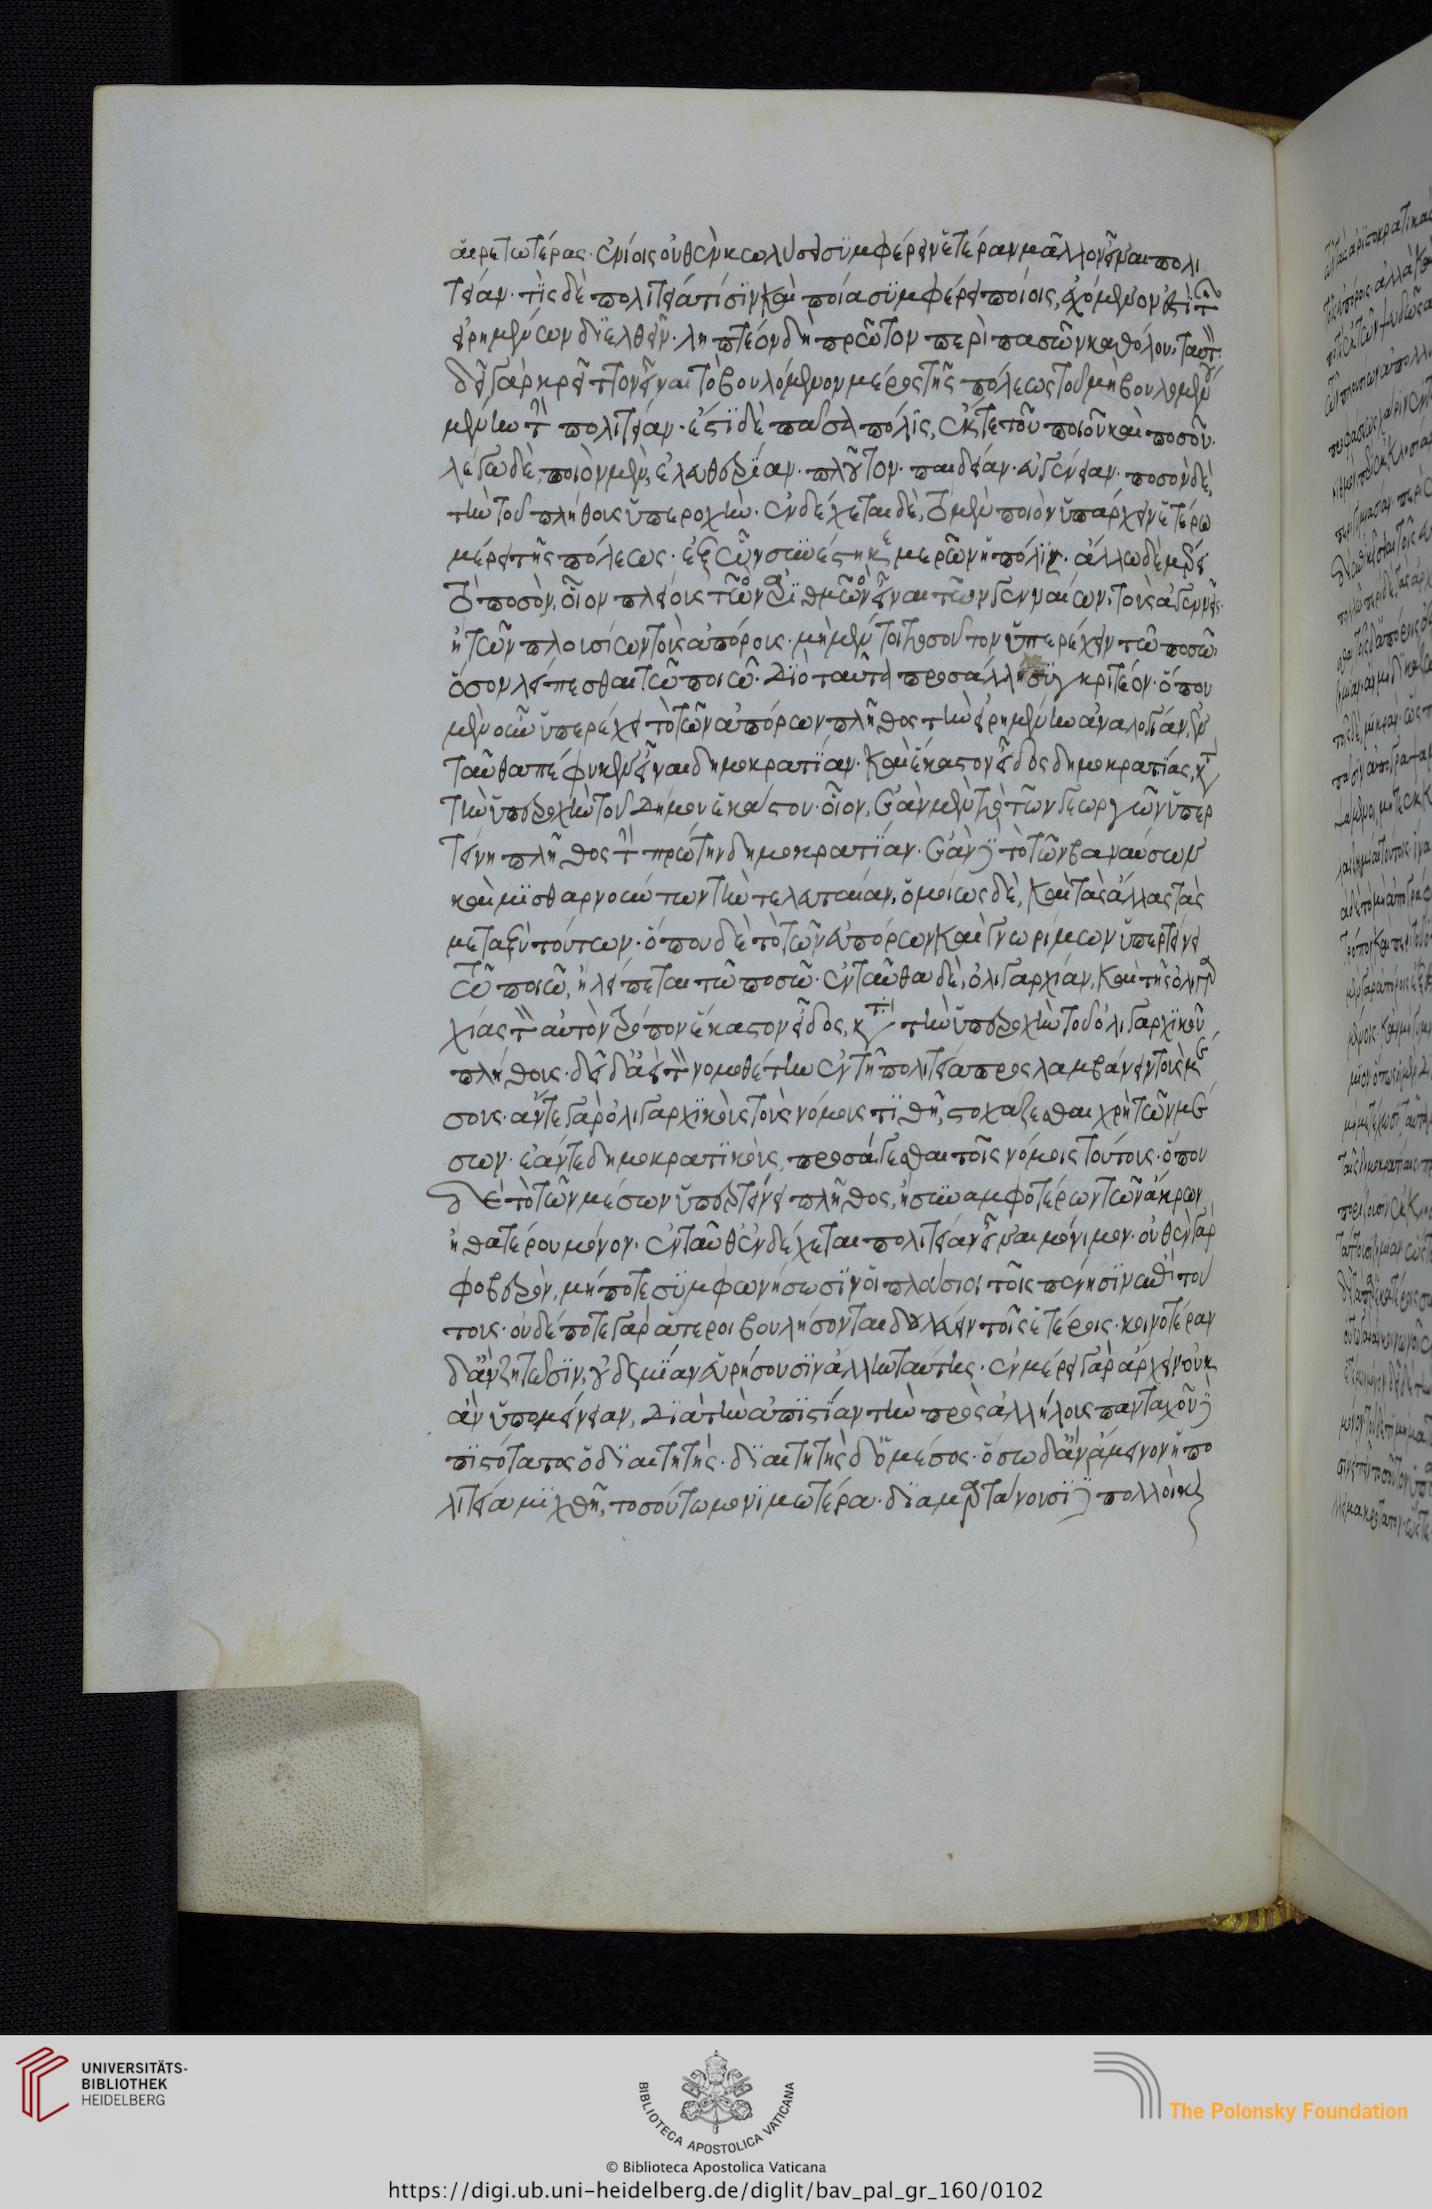 αἱρετωτέρας· ἐνίοις οὐθὲν κωλύσει συμφέρειν ἑτέραν μᾶλλον εἶναι πολι
τείαν· τίς δὲ πολιτεία τίσιν καὶ ποία συμφέρει ποίοις, ἐχόμενον ἐστὶ τῶν
εἰρημένων διελθεῖν· ληπτέον δὴ πρῶτον περὶ πασῶν καθόλου ταυτόν·
δεῖ γὰρ κρεῖττον εἶναι τὸ βουλόμενον μέρος τῆς πόλεως τοῦ μὴ βουλομένου
μένειν τὴν πολιτείαν· ἔστι δὲ πᾶσα πόλις, ἔκ τε τοῦ ποιοῦ καὶ ποσοῦ·
λέγω δὲ, ποιὸν μὲν, ἐλευθερίαν· πλοῦτον· παιδείαν· εὐγένειαν· ποσὸν δὲ,
τὴν τοῦ πλήθους ὑπεροχήν· ἐνδέχεται δὲ, τὸ μὲν ποιὸν ὑπάρχειν ἑτέρω
μέρει τῆς πόλεως· ἐξ ὧν συνέστηκε μερῶν ἡ πόλις· ἄλλω δὲ μέρει
τὸ ποσὸν, οἷον πλείους τὸν ἀριθμὸν εἶναι τῶν γενναίων, τοὺς ἀγεννεῖς·
ἢ τῶν πλουσίων τοὺς ἀπόρους· μὴ μέντοι τοσοῦτον ὑπερέχειν τῶ ποσῶ,
ὅσον λείπεσθαι τῶ ποιῶ· Διὸ ταῦτα προς άλληλα συγκριτέον· ὅπου
μὲν οὖν ὑπερέχει τὸ τῶν ἀπόρων πλῆθος τὴν εἰρημένην ἀναλογίαν, ἐν
ταῦθα πέφυκεν εἶναι δημοκρατίαν· Καὶ ἕκαστον εἶδος δημοκρατίας, κατὰ
τὴν ὑπεροχὴν τοῦ Δήμου ἑκάστου· οἷον, ἐὰν μὲν τὸ τῶν γεωργῶν ὑπερ
τείνη πλῆθος τὴν πρώτην δημοκρατίαν· ἐὰν δὲ τὸ τῶν βαναύσων
καὶ μισθαρνούντων τὴν τελευταίαν, ὁμοίως δὲ, Καὶ τὰς ἄλλας τὰς
μεταξὺ τούτων· ὅπου δὲ τὸ τῶν εὐπόρων Καὶ γνωρίμων ὑπερτείνει
τῶ ποιῶ, ἢ λείπεται τῶ ποσῶ· ἐνταῦθα δὲ, ὀλιγαρχίαν, Καὶ τῆς ὀλιγαρ
χίας τὸν αὐτὸν τρόπον ἕκαστον εἶδος, κατὰ τὴν ὑπεροχὴν τοῦ ὀλιγαρχικοῦ
πλήθους· δεῖ δ' ἀεὶ τὸν νομοθέτην ἐν τῆ πολιτεία προσλαμβάνειν τοὺς μέ
σους· ἄν τε γὰρ ὀλιγαρχικοὺς τοὺς νόμους τιθῆ, στοχάζεσθαι χρὴ τῶν μέ
σων· ἐάν τε δημοκρατικοὺς, προσάγεσθαι τοῖς νόμοις τούτοις· ὅπου
δὲ τὸ τῶν μέσων ὑπερτείνει πλῆθος, ἢ συναμφοτέρων τῶν ἄκρων
ἢ θατέρου μόνον· ἐνταῦθ' ἐνδέχεται πολιτείαν εἶναι μόνιμον· οὐθὲν γὰρ
φοβερὸν, μήποτε συμφωνήσωσιν οἱ πλούσιοι τοῖς πένησιν ἐπὶ τού
τους· οὐδέποτε γὰρ ἅτεροι βουλήσονται δουλεύειν τοῖς ἑτέροις· κοινοτέραν
δ' ἂν ζητῶσιν, οὐδεμίαν εὑρήσουσιν ἄλλην ταύτης· ἐν μέρει γὰρ ἄρχειν οὐκ
ἂν ὑπομείνειαν, Διὰ τὴν ἀπιστίαν τὴν πρὸς ἀλλήλους πανταχοῦ δὲ
πιστότατος ὁ διαιτητής· διαιτητὴς δ' ὁ μέσος· ὅσω δ' ἂν ἄμεινον ἡ πο
λιτεία μιχθῆ, τοσούτω μονιμωτέρα· διαμαρτάνουσι δὲ πολλοὶ καὶ
UNIVERSITÄTS-
BIBLIOTHEK
HEIDELBERG
BIBLIOTECA APOSTOLICA VATICANA
The Polonsky Foundation
© Biblioteca Apostolica Vaticana
https://digi.ub.uni-heidelberg.de/diglit/bav_pal_gr_160/0102